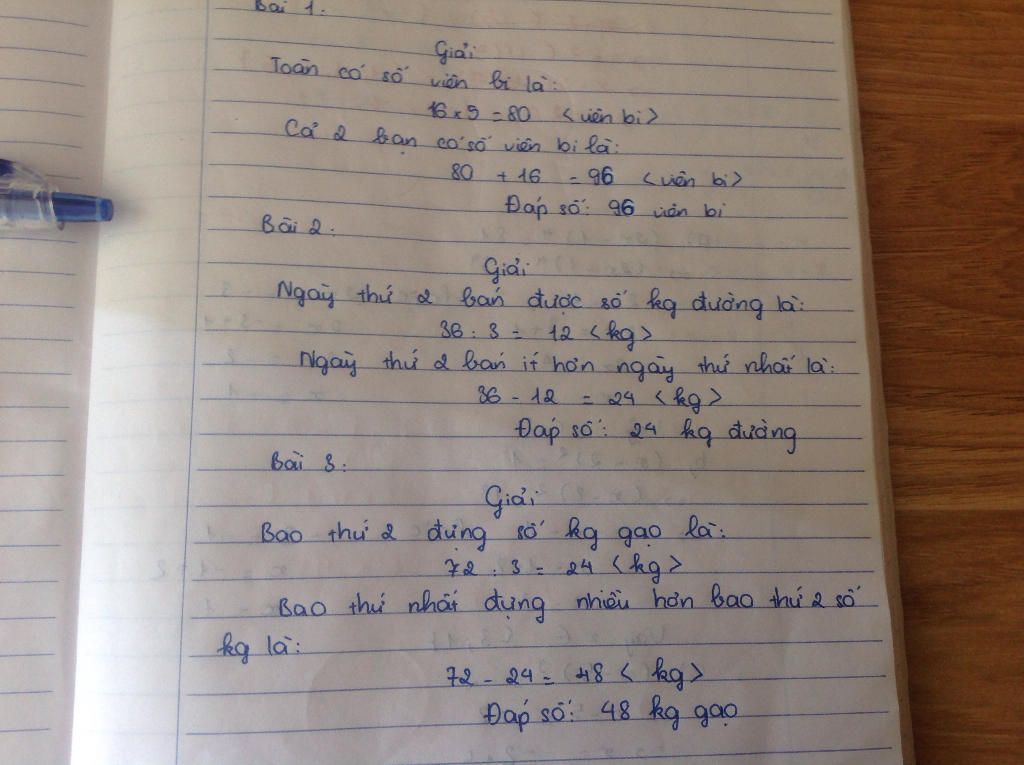 Bài 1:
Giải
Toàn có số viên bi là:
16 x 5 = 80 <viên bi>
Cả 2 bạn có số viên bi là:
80 + 16 = 96 <viên bi>
Đáp số: 96 viên bi
Bài 2:
Giải
Ngày thứ 2 bán được số kg đường là:
36 : 3 = 12 <kg>
Ngày thứ 2 bán ít hơn ngày thứ nhất là:
36 - 12 = 24 <kg>
Đáp số: 24 kg đường
Bài 3:
Giải
Bao thứ 2 đựng số kg gạo là:
72 : 3 = 24 <kg>
Bao thứ nhất đựng nhiều hơn bao thứ 2 số
kg là:
72 - 24 = 48 <kg>
Đáp số: 48 kg gạo